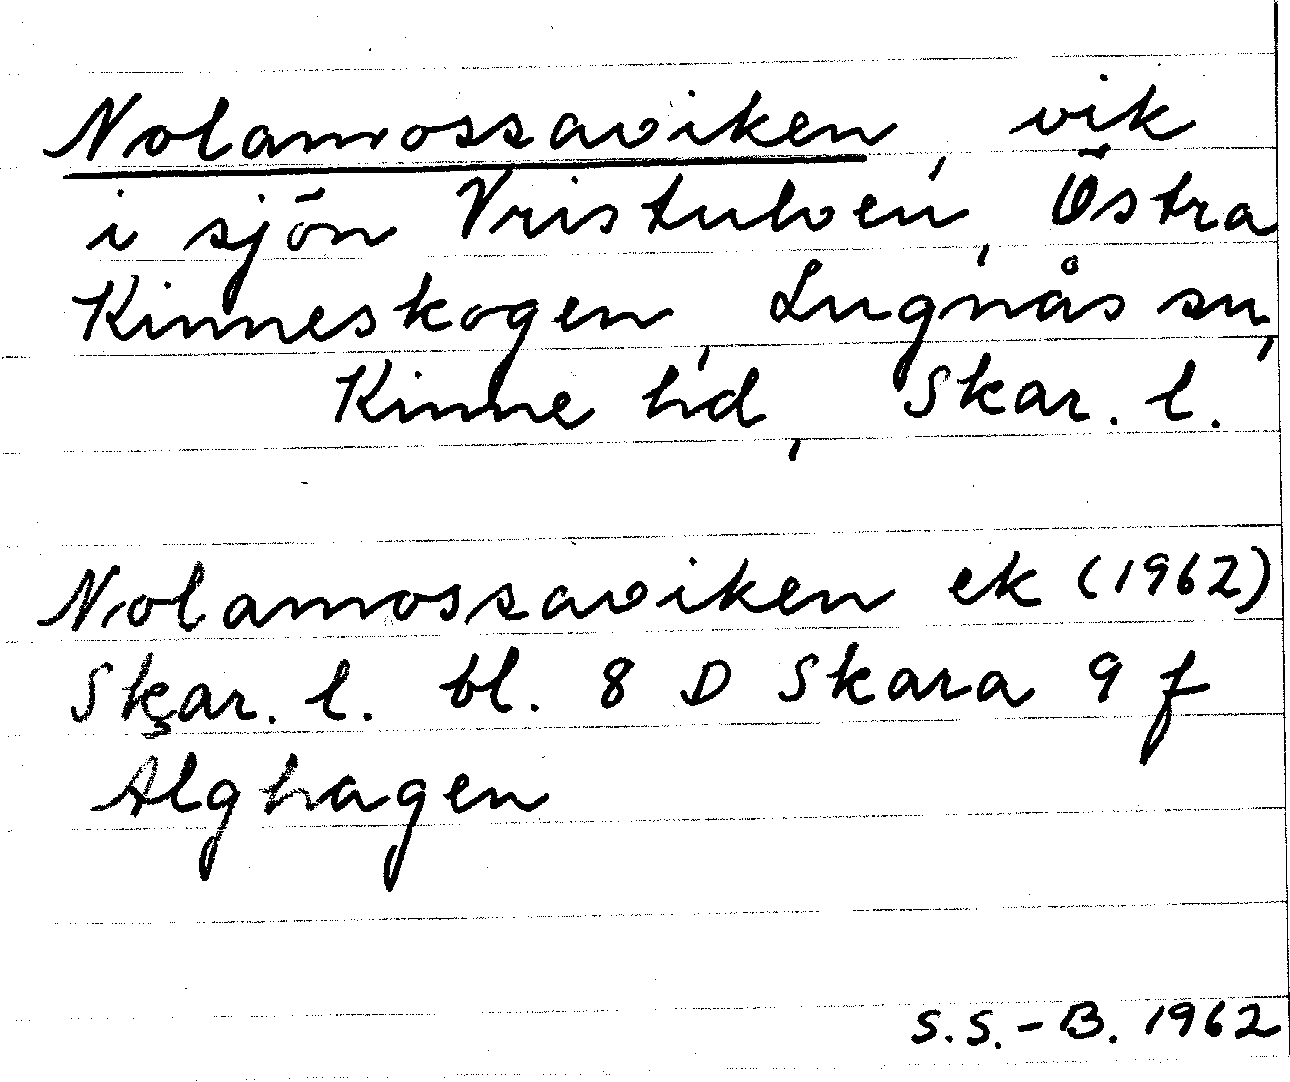 Nolamossaviken, vik
i sjön Vristulven, Östra
Kinneskogen, Lugnås sn,
Kinne hd, Skar. l.
Nolamossaviken ek (1962)
Skar. l. bl. 8 D Skara 9 f
Alghagen
S.S.-B. 1962